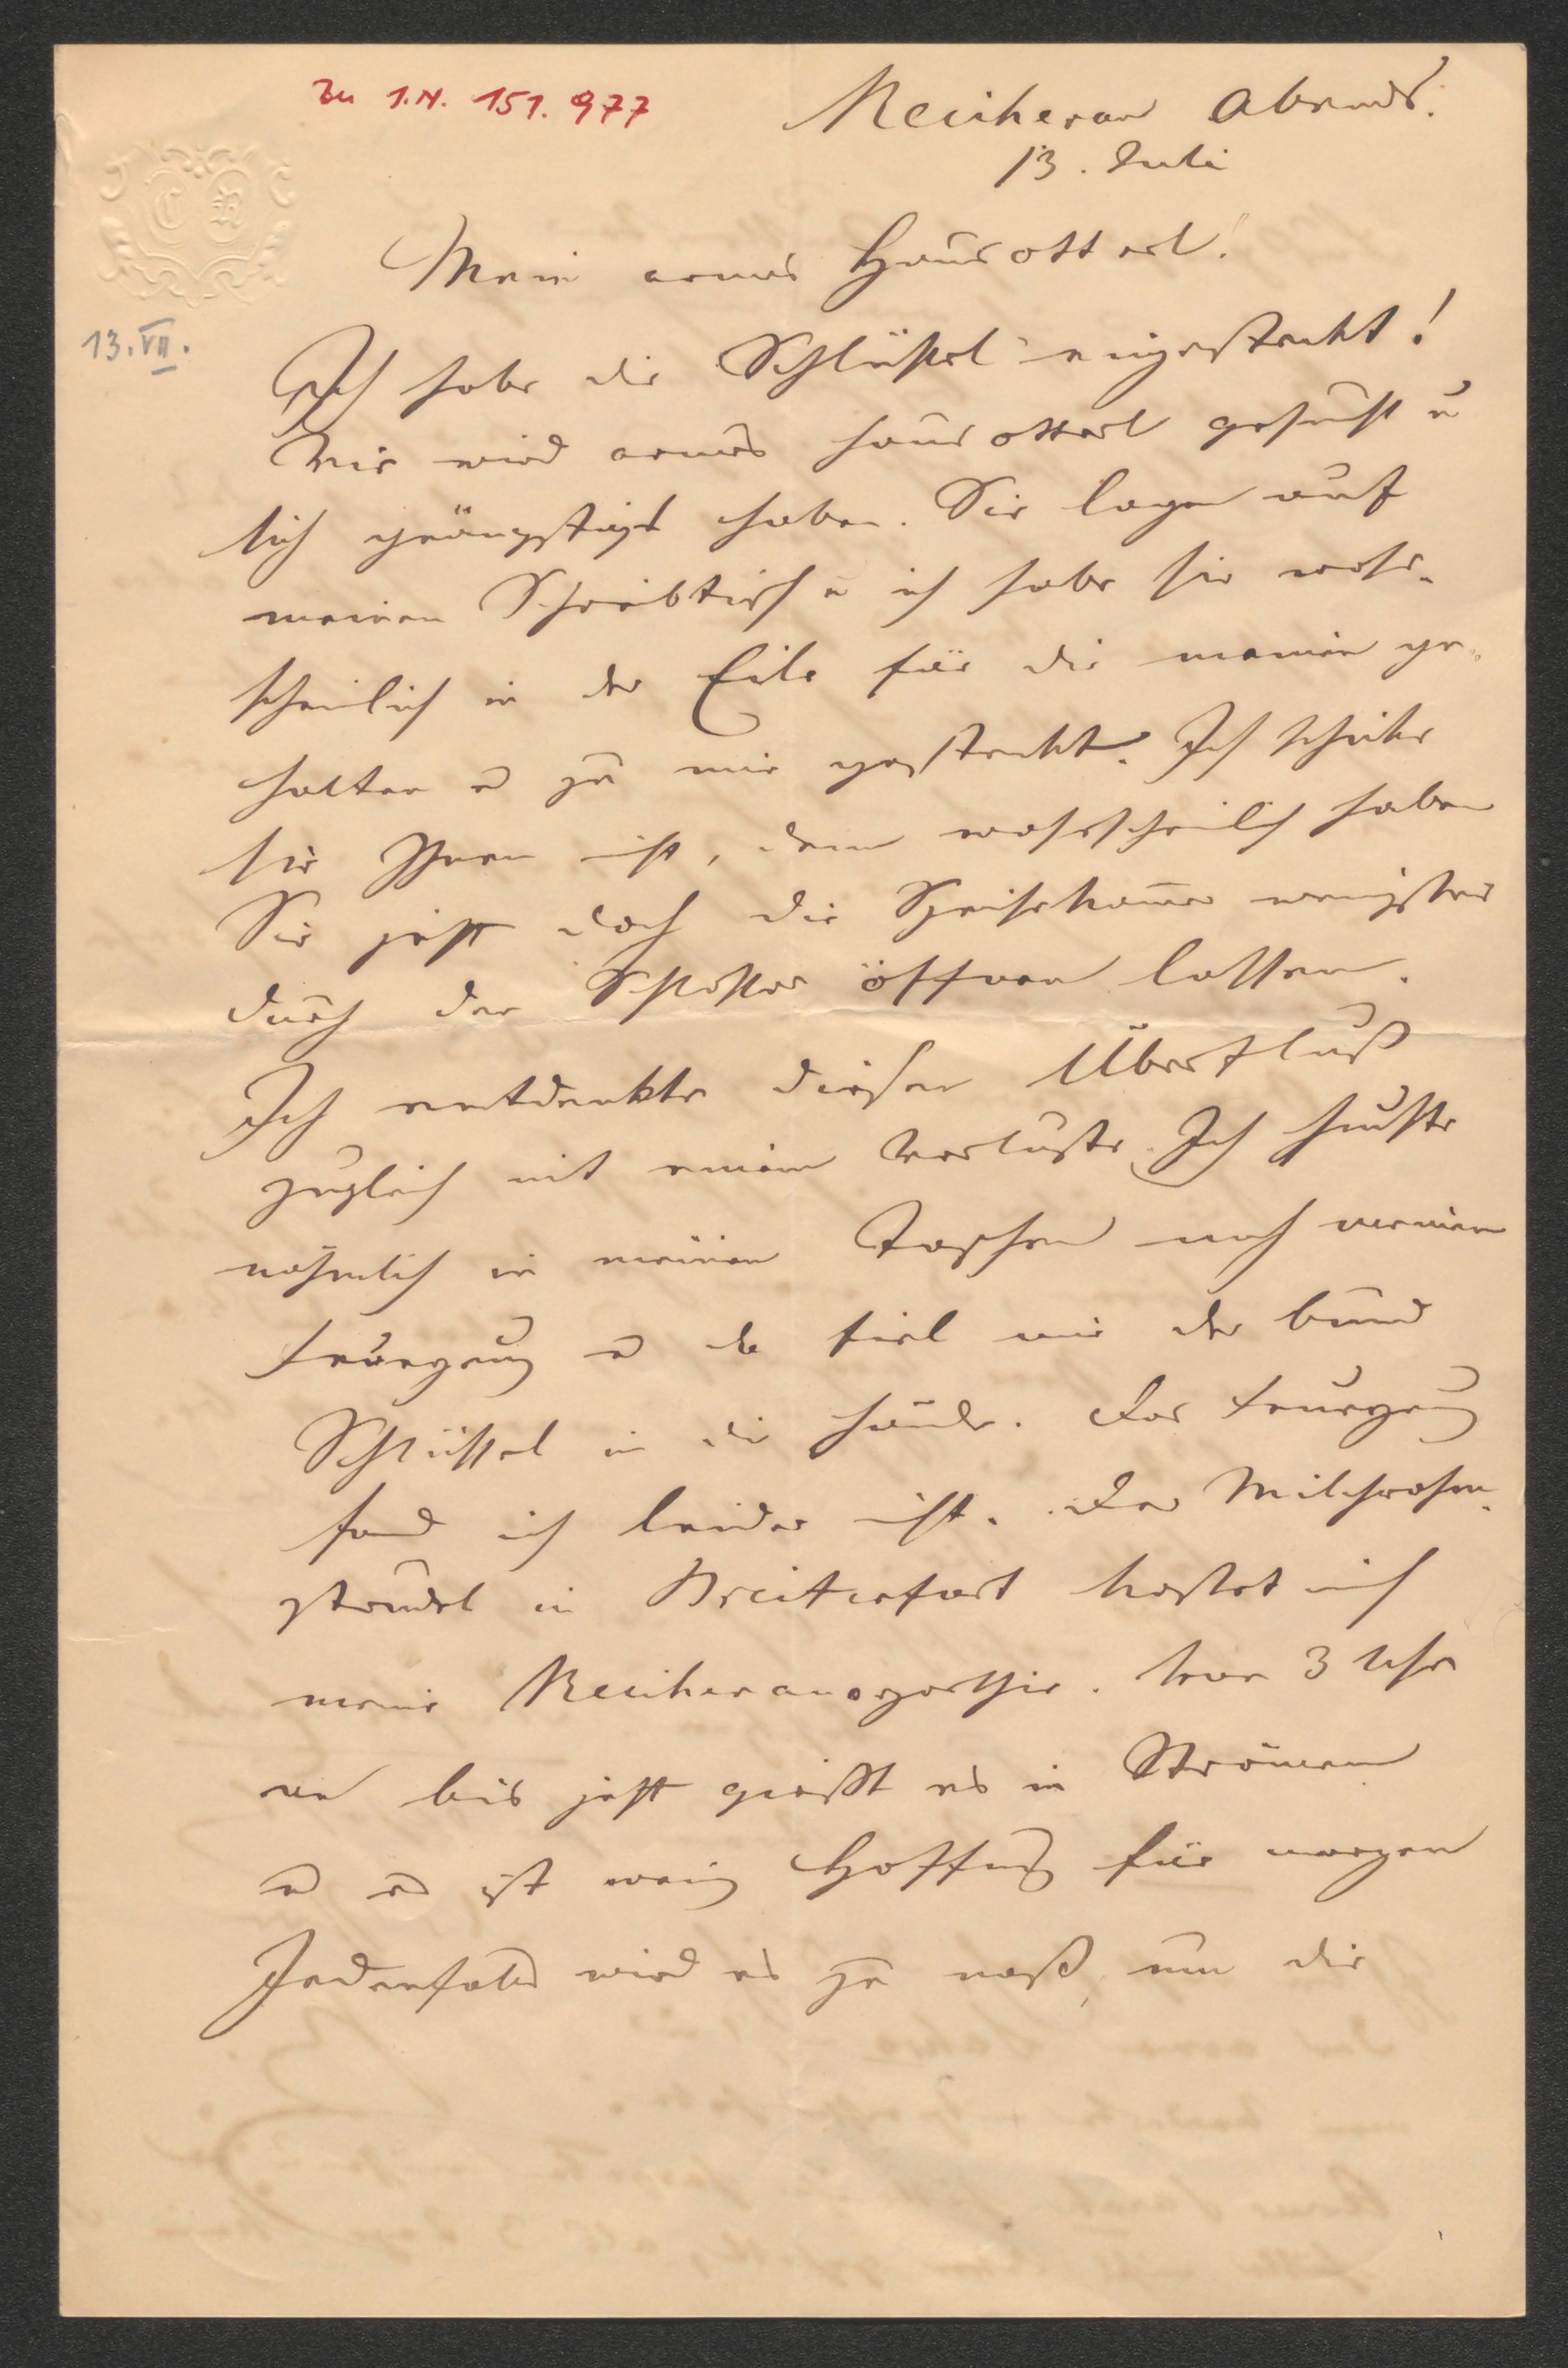 Zu I.N. 151.977
Neuberg Abends.
13. Juli
C R
13.VII.
Mein armes Hausotterl!
Ich habe die Schlüßel eingesteckt!
Wie wird armes Hausotterl gesucht u
sich geängstigt haben. Sie lagen auf
meinem Schreibtisch u ich habe sie wahr-
scheinlich in der Eile für die meinen ge-
halten u zu mir gesteckt. Ich schicke
sie Ihnen nicht, denn wahrscheinlich haben
Sie jetzt doch die Speisekam̄er wenigstens
durch den Schlosser öffnen lassen.
Ich entdeckte diesen Überfluß
zugleich mit einem Verluste. Ich suchte
nähmlich in meinen Taschen nach meinem
Feuerzeug u da fiel mir der Bund
Schlüssel in die Hände. Das Feuerzeug
fand ich leider nicht. Der Milchrahm-
strudel in Breitenfurt kostet mich
meine parthie. Von 3 Uhr
an bis jetzt gießt es in Strömen
u es ist wenig Hoffnung für morgen
Jedenfalls wird es zu naß, um die